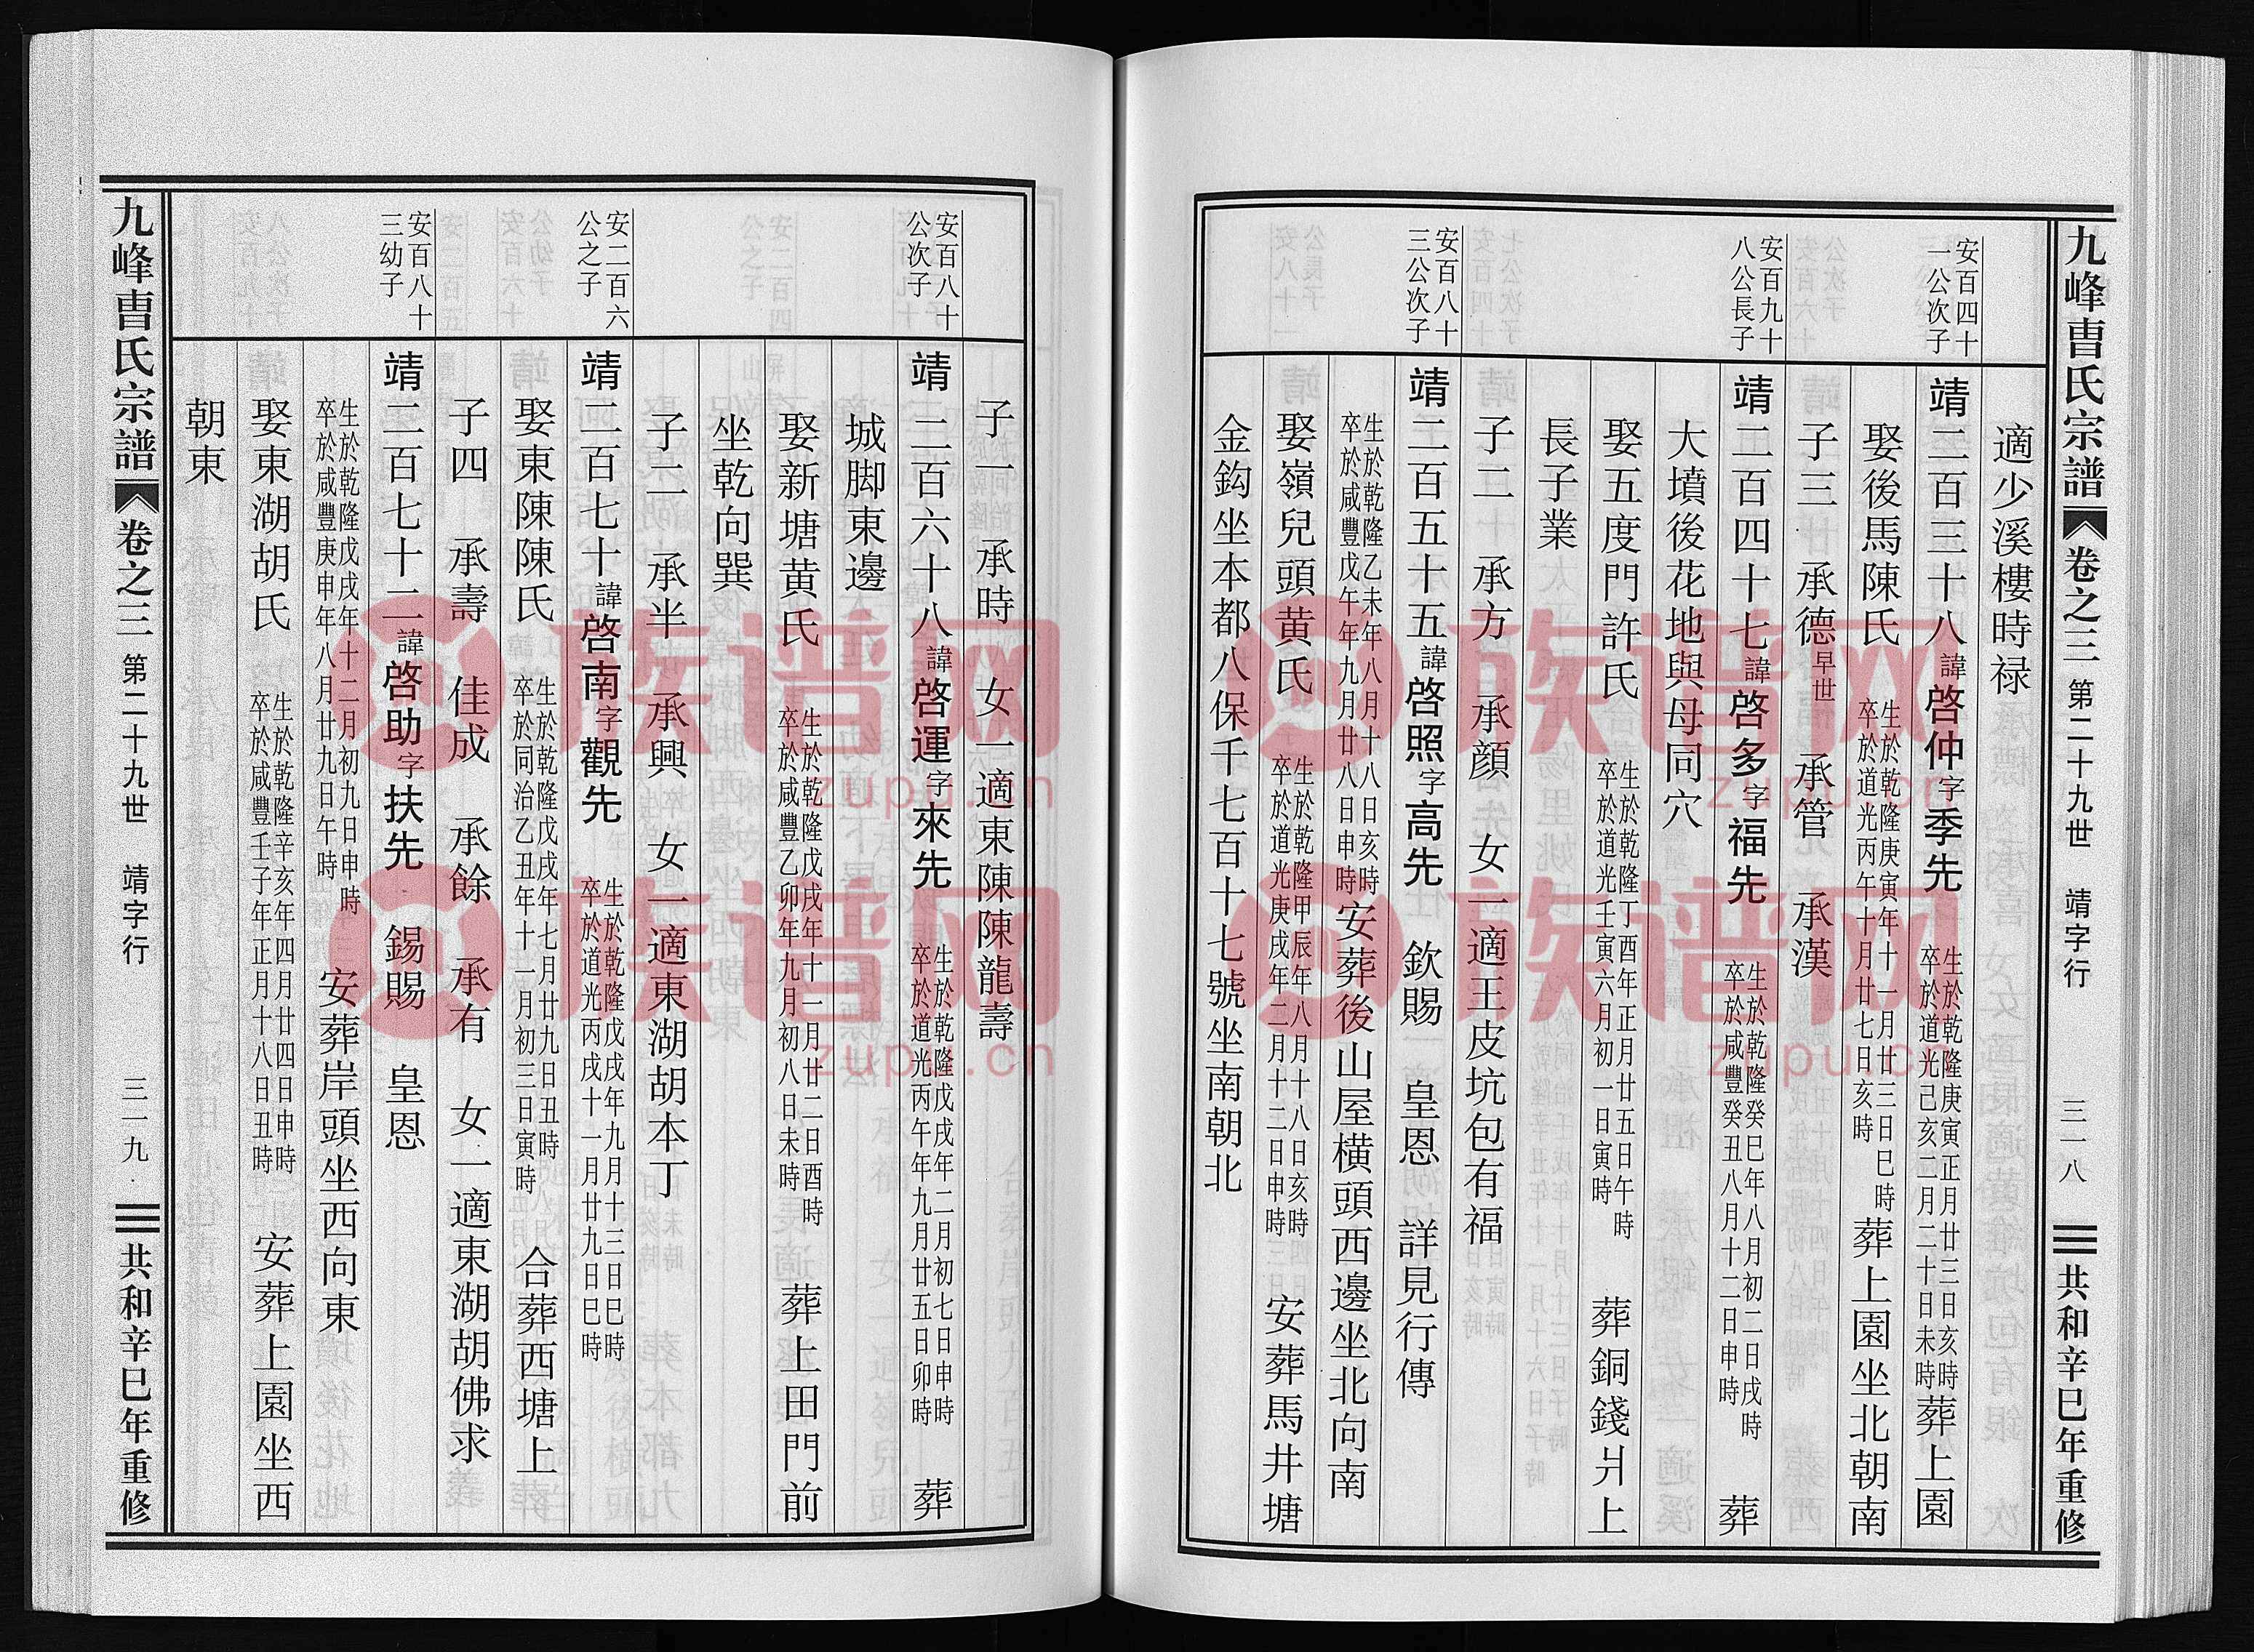 九峰曺氏宗譜 卷之三 第二十九世 靖字行 三一八 共和辛巳年重修
適少溪樓時禄
安百四十
一公次子
靖二百三十八諱啓仲字季先
生於乾隆庚寅正月廿三日亥時
卒於道光己亥二月二十日未時
葬上園
娶後馬陳氏
生於乾隆庚寅年十一月廿三日巳時
卒於道光丙午十月廿七日亥時
葬上園坐北朝南
子三 承德早世 承管 承漢
安百九十
八公長子
靖二百四十七諱啓多字福先
生於乾隆癸巳年八月初二日戌時
卒於咸豐癸丑八月十二日申時
葬
大墳後花地與母同穴
娶五度門許氏
生於乾隆丁酉年正月廿五日午時
卒於道光壬寅六月初一日寅時
葬銅錢爿上
長子業
子二 承方 承顔 女一適王皮坑包有福
安百八十
三公次子
靖二百五十五諱啓照字高先 欽賜 皇恩 詳見行傳
生於乾隆乙未年八月十八日亥時
卒於咸豐戊午年九月廿八日申時
安葬後山屋横頭西邊坐北向南
娶嶺兒頭黄氏
生於乾隆甲辰年八月十八日亥時
卒於道光庚戌年二月十二日申時
安葬馬井塘
金鈎坐本都八保千七百十七號坐南朝北
子一 承時 女一適東陳陳龍壽
安百八十
公次子
靖二百六十八諱啓運字來先
生於乾隆戊戌年二月初七日申時
卒於道光丙午年九月廿五日卯時
葬
城脚東邊
娶新塘黄氏
生於乾隆戊戌年十一月廿二日酉時
卒於咸豐乙卯年九月初八日未時
葬上田門前
坐乾向巽
子二 承半 承興 女一適東湖胡本丁
安二百六
公之子
靖二百七十諱啓南字觀先
生於乾隆戊戌年九月十三日巳時
卒於道光丙戌十一月廿九日巳時
娶東陳陳氏
生於乾隆戊戌年七月廿九日丑時
卒於同治乙丑年十一月初三日寅時
合葬西塘上
子四 承壽 佳成 承餘 承有 女一適東湖胡佛求
安百八十
三幼子
靖二百七十二諱啓助字扶先 錫賜 皇恩
生於乾隆戊戌年十二月初九日申時
卒於咸豐庚申年八月廿九日午時
安葬岸頭坐西向東
娶東湖胡氏
生於乾隆辛亥年四月廿四日申時
卒於咸豐壬子年正月十八日丑時
安葬上園坐西
朝東
九峰曺氏宗譜 卷之三 第二十九世 靖字行 三一九 共和辛巳年重修
族谱网
zupu.cn
族谱网
zupu.cn
族谱网
zupu.cn
族谱网
zupu.cn